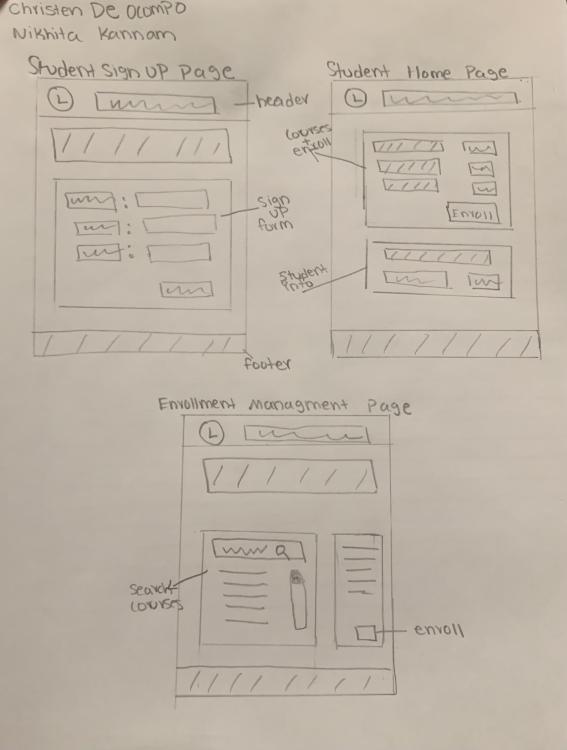 Christen De Ocampo
Nikhita Kannam
Student Sign Up Page
L
header
sign
up
form
footer
Student Home Page
L
courses
+
enroll
Enroll
Student
info
Enrollment Managment Page
L
search
courses
enroll